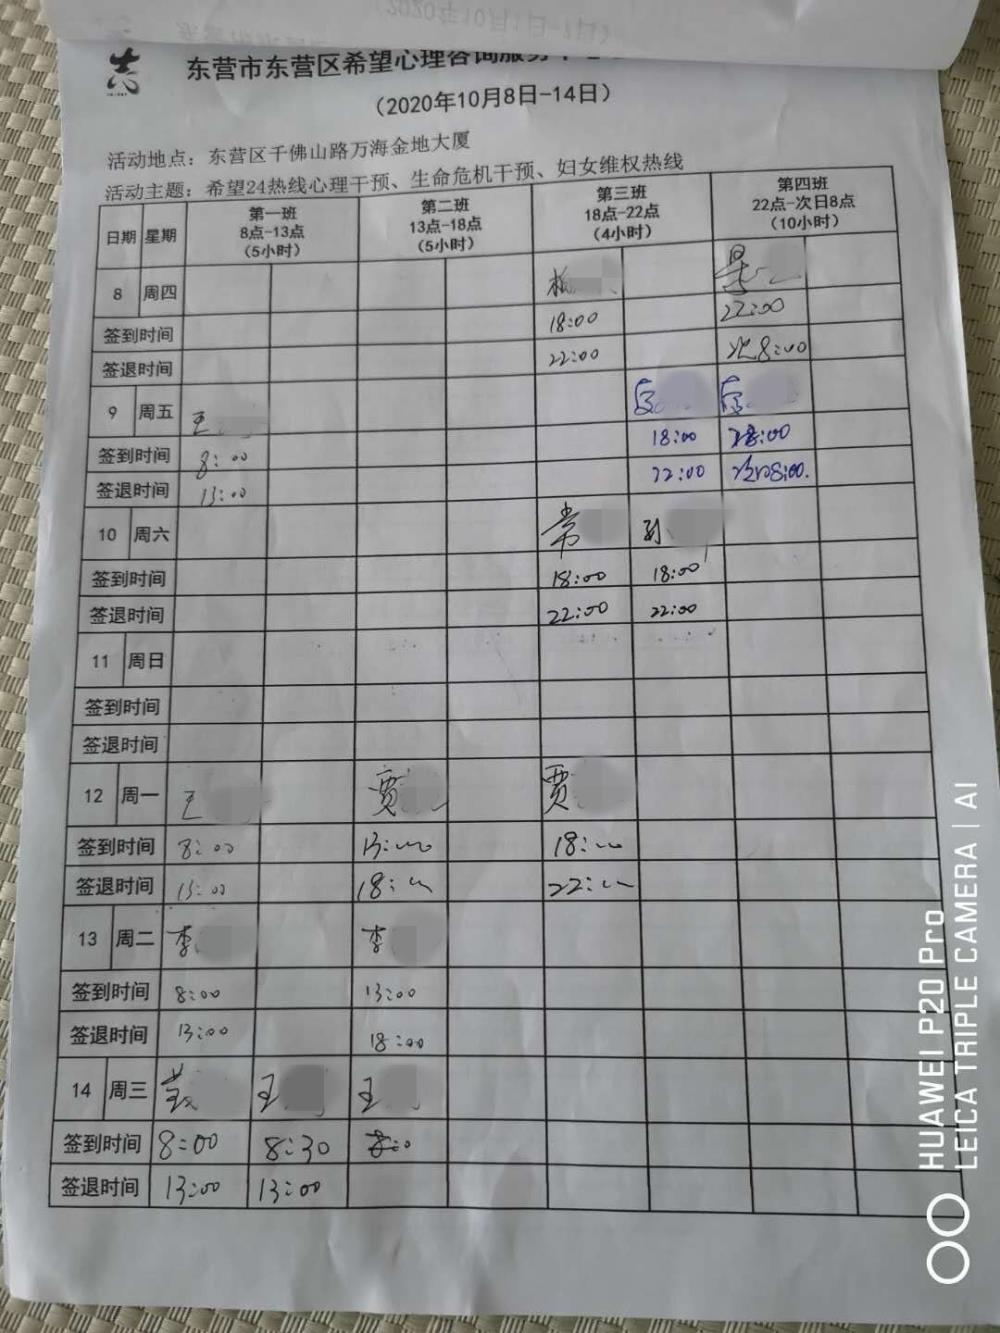 东营市东营区希望心理咨询服务中心
(2020年10月8日-14日)
活动地点：东营区千佛山路万海金地大厦
活动主题：希望24热线心理干预、生命危机干预、妇女维权热线
日期 星期 第一班 8点-13点 (5小时) 第二班 13点-18点 (5小时) 第三班 18点-22点 (4小时) 第四班 22点-次日8点 (10小时)
8 周四
签到时间 18:00 22:00
签退时间 22:00 次8:00
9 周五 王
签到时间 8:00 18:00
签退时间 13:00 22:00 次日8:00.
10 周六 常 孙
签到时间 18:00 18:00
签退时间 22:00 22:00
11 周日
签到时间
签退时间
12 周一 王 贾 贾
签到时间 8:00 13:00 18:00
签退时间 13:00 18:00 22:00
13 周二 李 李
签到时间 8:00 13:00
签退时间 13:00 18:00
14 周三 王 王
签到时间 8:00 8:30
签退时间 13:00 13:00
HUAWEI P20 Pro
LEICA TRIPLE CAMERA | AI